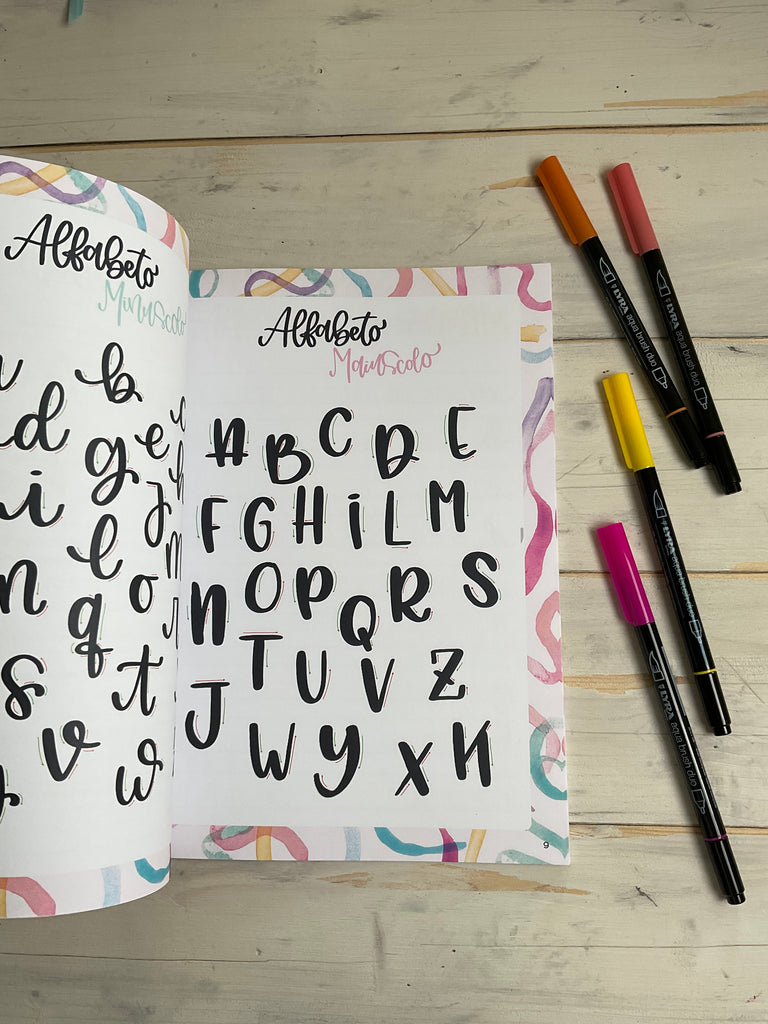 Alfabeto
Minuscolo
b
d g e
i j
l
n o
q
s t
v w
Alfabeto
Maiuscolo
A B C D E
F G H i L M
N O P Q R S
J T U V Z
W Y X K
9
LYRA aqua brush duo
LYRA aqua brush duo
LYRA aqua brush duo
LYRA aqua brush duo